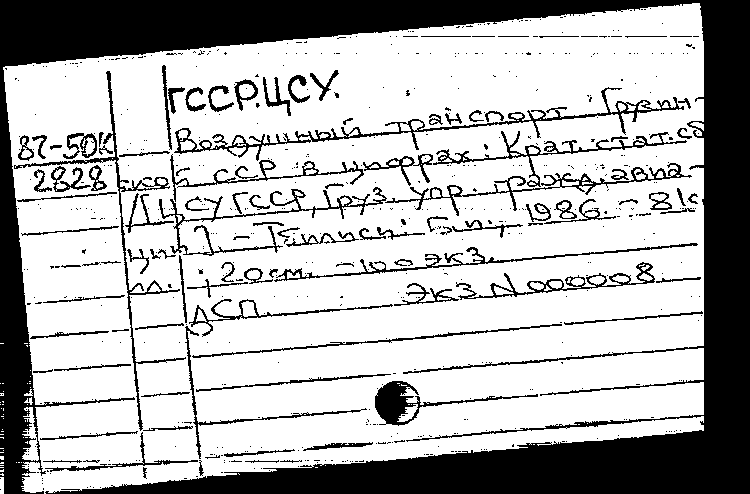 ГССР.ЦСУ.
87-50К Воздушный транспорт Грузин-
2828 ской ССР в цифрах: Крат. стат. сб
/[ЦСУ ГССР, Груз. упр. гражд. авиа-
ции]. - Тбилиси: Б.и., 1986. - 81 с.
ил. ; 20 см. - 100 экз.
ДСП. Экз. N 000008.